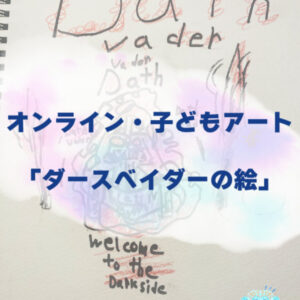 Dath
vader
vader
Dath
オンライン・子どもアート
「ダースベイダーの絵」
welcome
to the
Darkside